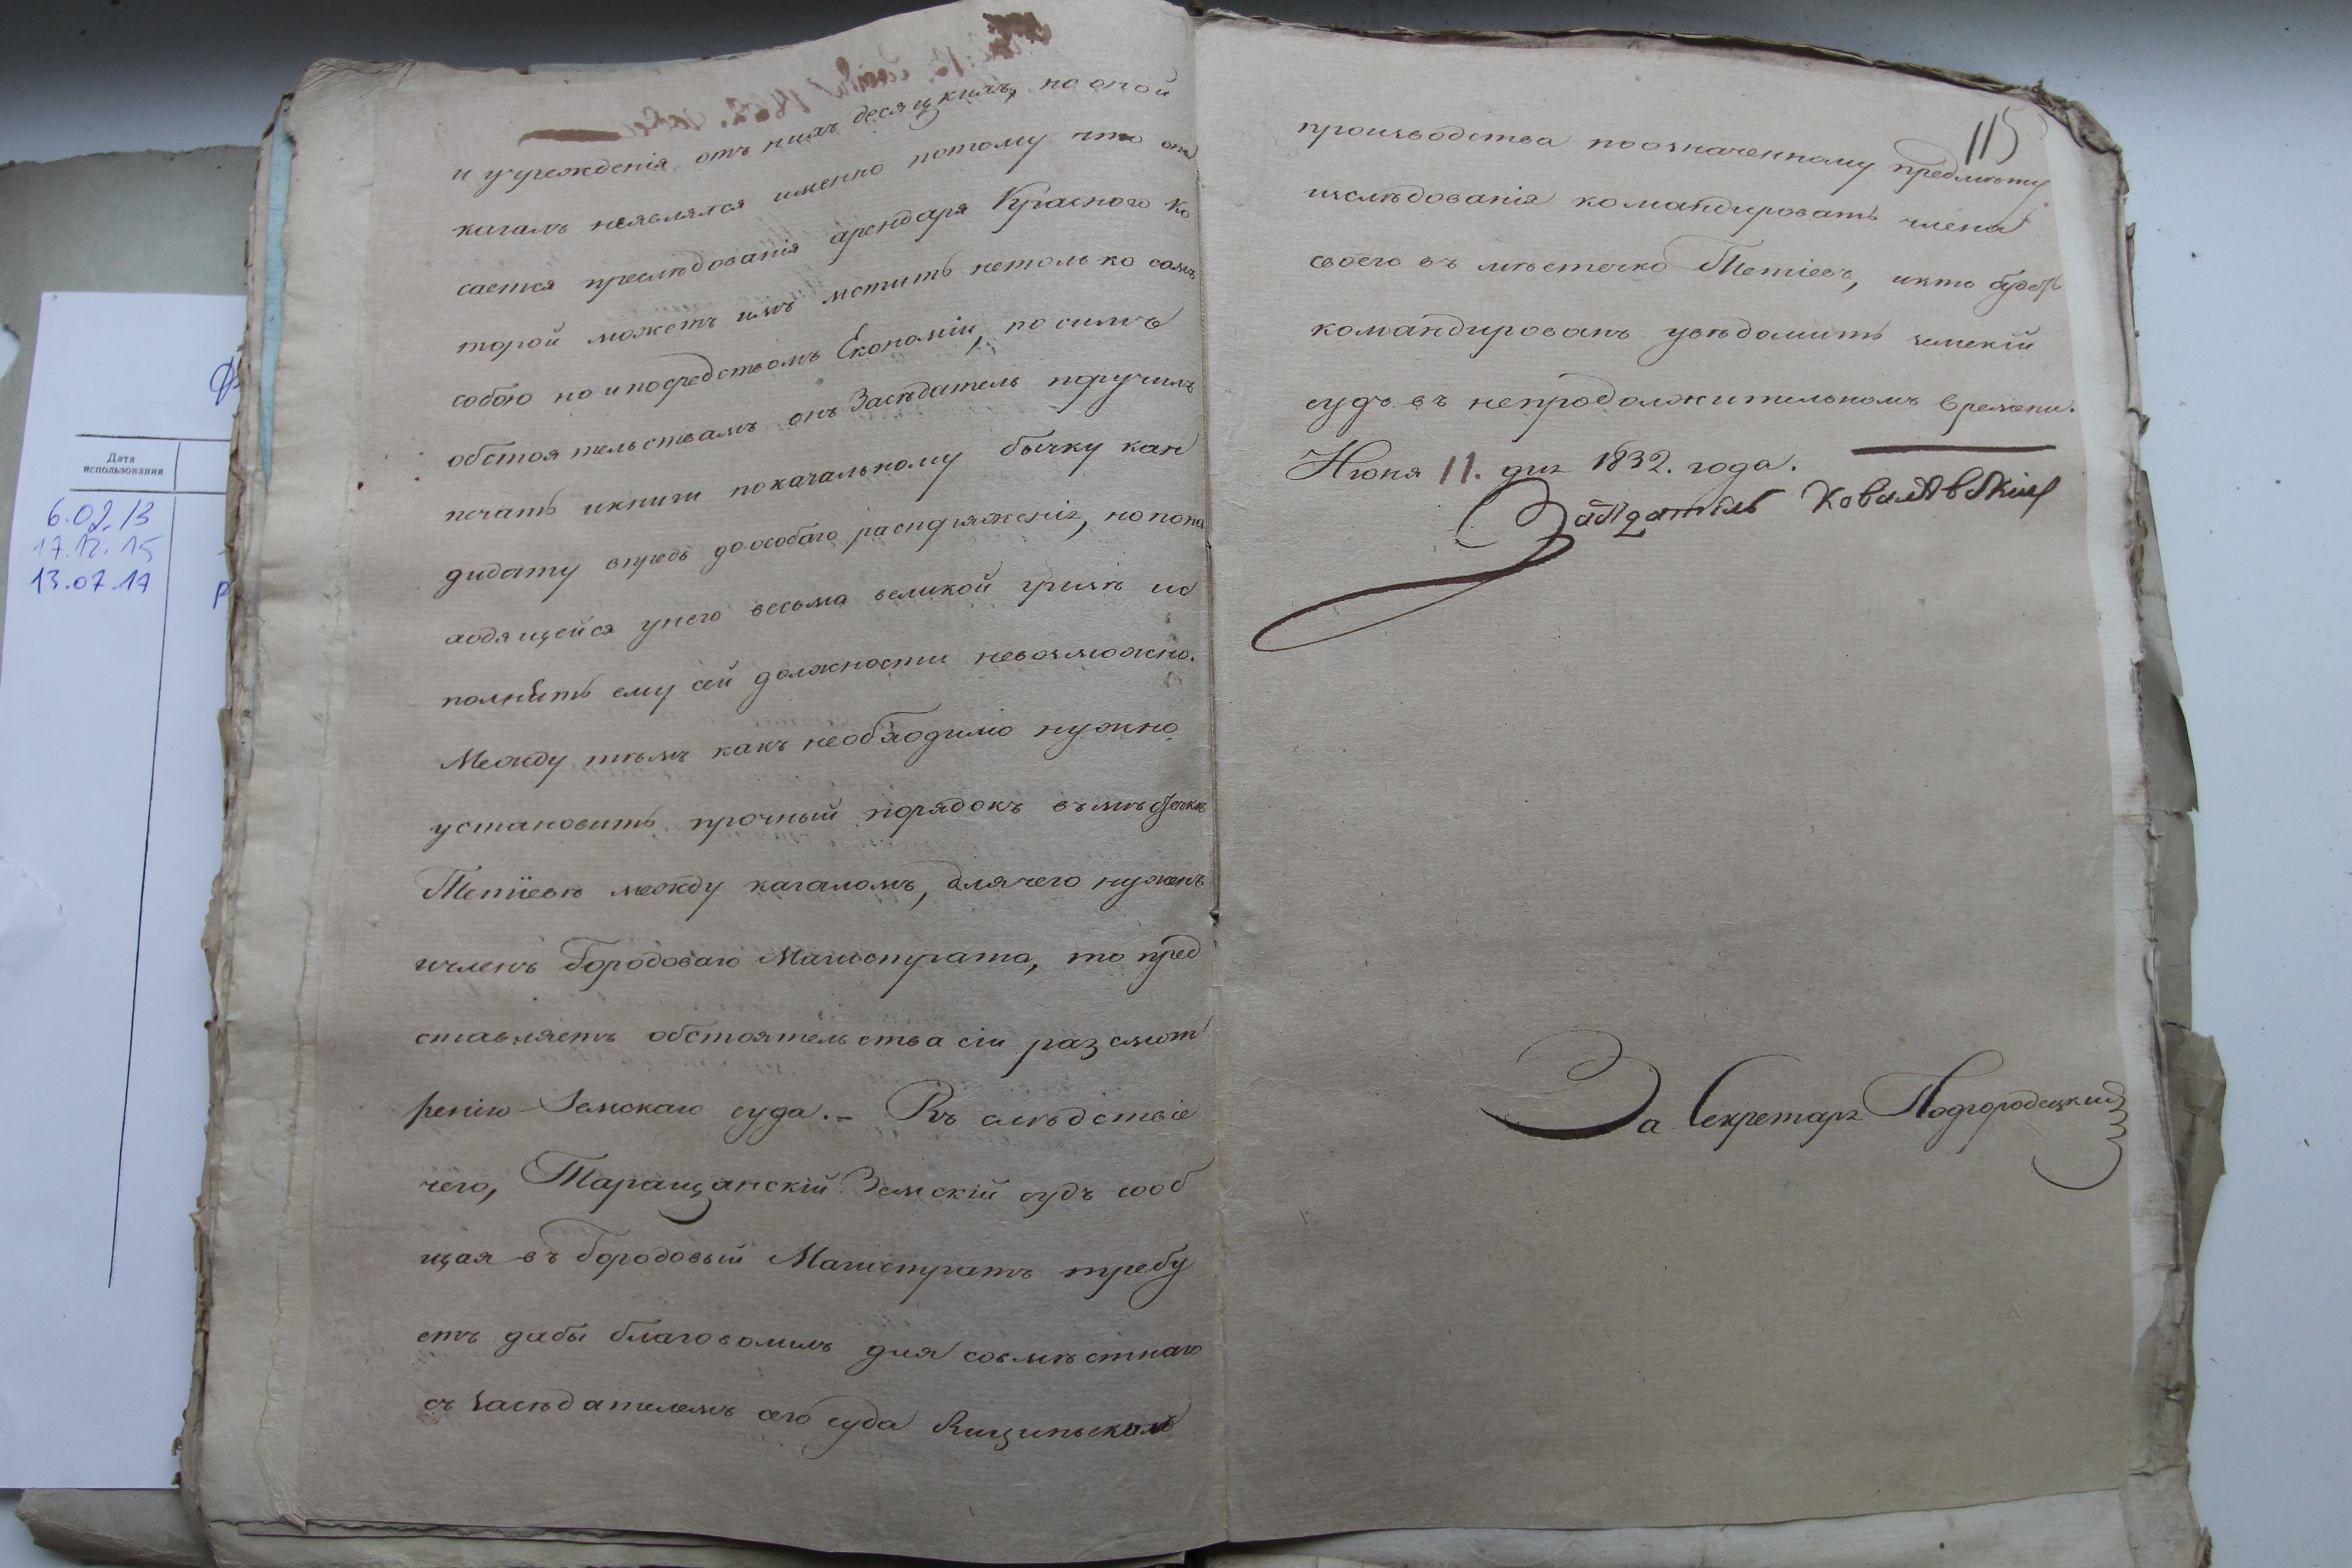 и учреждения отъ нихъ десяцкихъ, но оной
кагалъ неявлялся именно потому что опа
сается преслѣдованія арендаря Красного ко
торой можетъ имъ мстить нетолько самъ
собою но и посредствомъ Економіи, по симъ
обстоятельствамъ онъ Засѣдатель поручилъ
печать икниги покагальному бычку кан
дидату впредь доособаго распоряженія, но пона
ходящейся унего весьма великой грызѣ ис
полнить ему сей должности невозможно.
Между тѣмъ какъ необходимо нужно
установить прочный порядокъ въ мѣстечкѣ
Тетіевѣ между кагаломъ, для чего нуженъ
ичленъ Городоваго Магистрата, то пред
ставляетъ обстоятельства сіи разсмот
ренію Земскаго суда. – Въ слѣдствіе
чего, Таращанскій Земскій судъ сооб
щая въ Городовый Магистратъ требу
етъ дабы благоволилъ для совмѣстнаго
съ засѣдателемъ сего суда
115
производства поозначенному предмѣту
изслѣдованія командировать члена
своего въ мѣстечко Тетіевъ, икто будетъ
командированъ увѣдомить земскій
судъ въ непродолжительномъ времени.
Июня 11. дня 1832. года.
Засѣдатель Ковалевскій
За Секретаря Подгородецкий
Дата
использования
6.02.13
17.12.15
13.07.17